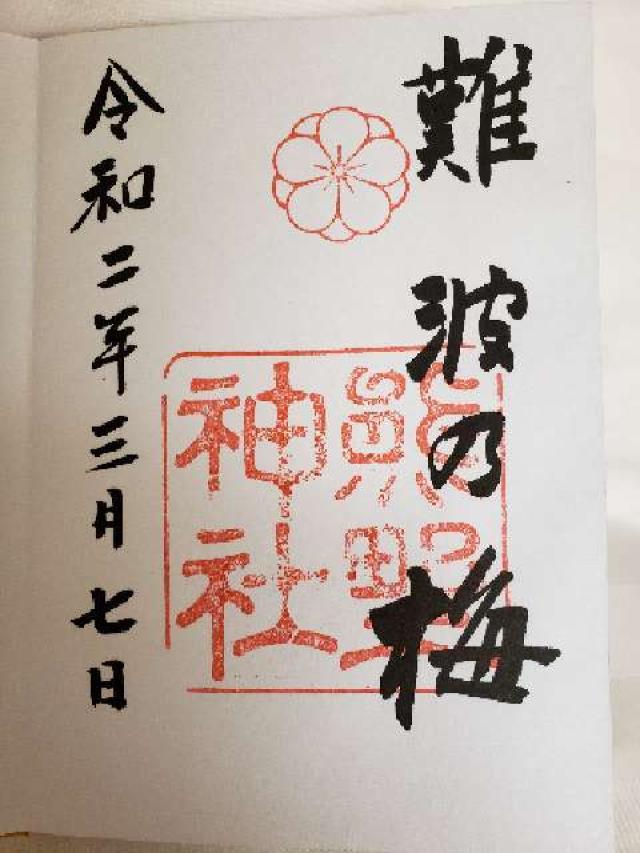 難波乃梅
熊野
神社
令和二年三月七日